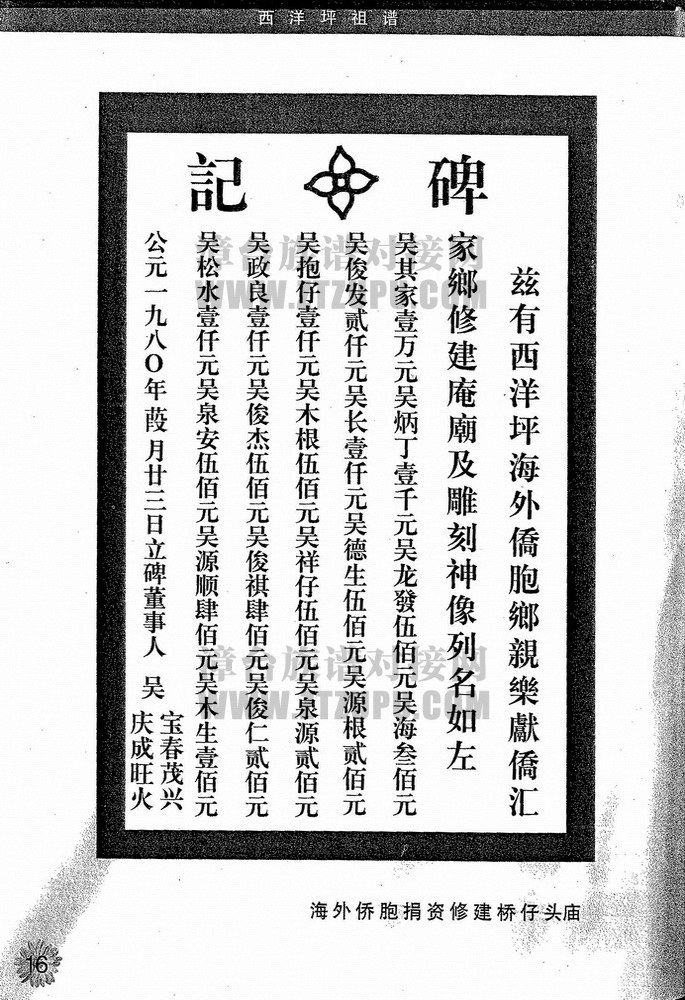 西洋坪祖谱
碑記
兹有西洋坪海外僑胞鄉親樂獻僑汇
家鄉修建庵廟及雕刻神像列名如左
吴其家壹万元吴炳丁壹千元吴龙發伍佰元吴海叁佰元
吴俊发贰仟元吴长壹仟元吴德生伍佰元吴源根贰佰元
吴抱仔壹仟元吴木根伍佰元吴祥仔伍佰元吴泉源贰佰元
吴政良壹仟元吴俊杰伍佰元吴俊祺肆佰元吴俊仁贰佰元
吴松水壹仟元吴泉安伍佰元吴源顺肆佰元吴木生壹佰元
公元一九八〇年葭月廿三日立碑董事人 吴
宝春茂兴
庆成旺火
漳台族谱对接网
漳台族谱对接网
海外侨胞捐资修建桥仔头庙
16